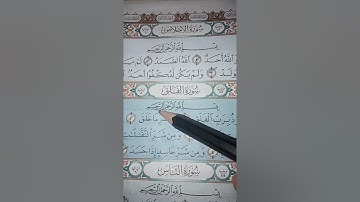 سورة الإخلاص
بسم الله الرحمن الرحيم
الله أحد الله الصمد لم
ولم يكن له كفوا أحد
سورة الفلق
بسم الله الرحمن الرحيم
برب الفلق شر ما خلق
ومن شر النفاثات
ومن شر حاسد إذا حسد
سورة الناس
بسم الله الرحمن الرحيم